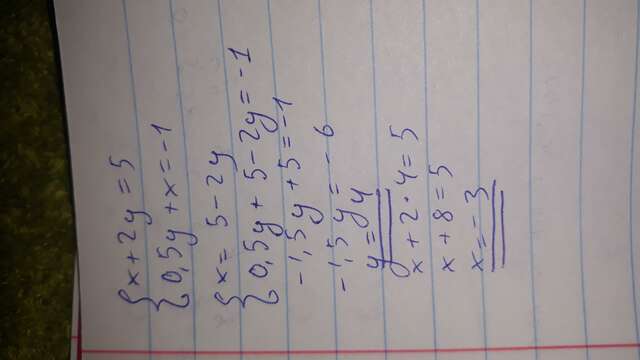 {x + 2y = 5
{0,5y + x = -1
{x = 5 - 2y
{0,5y + 5 - 2y = -1
-1,5y + 5 = -1
-1,5y = -6
y = 4
x + 2 · 4 = 5
x + 8 = 5
x = -3